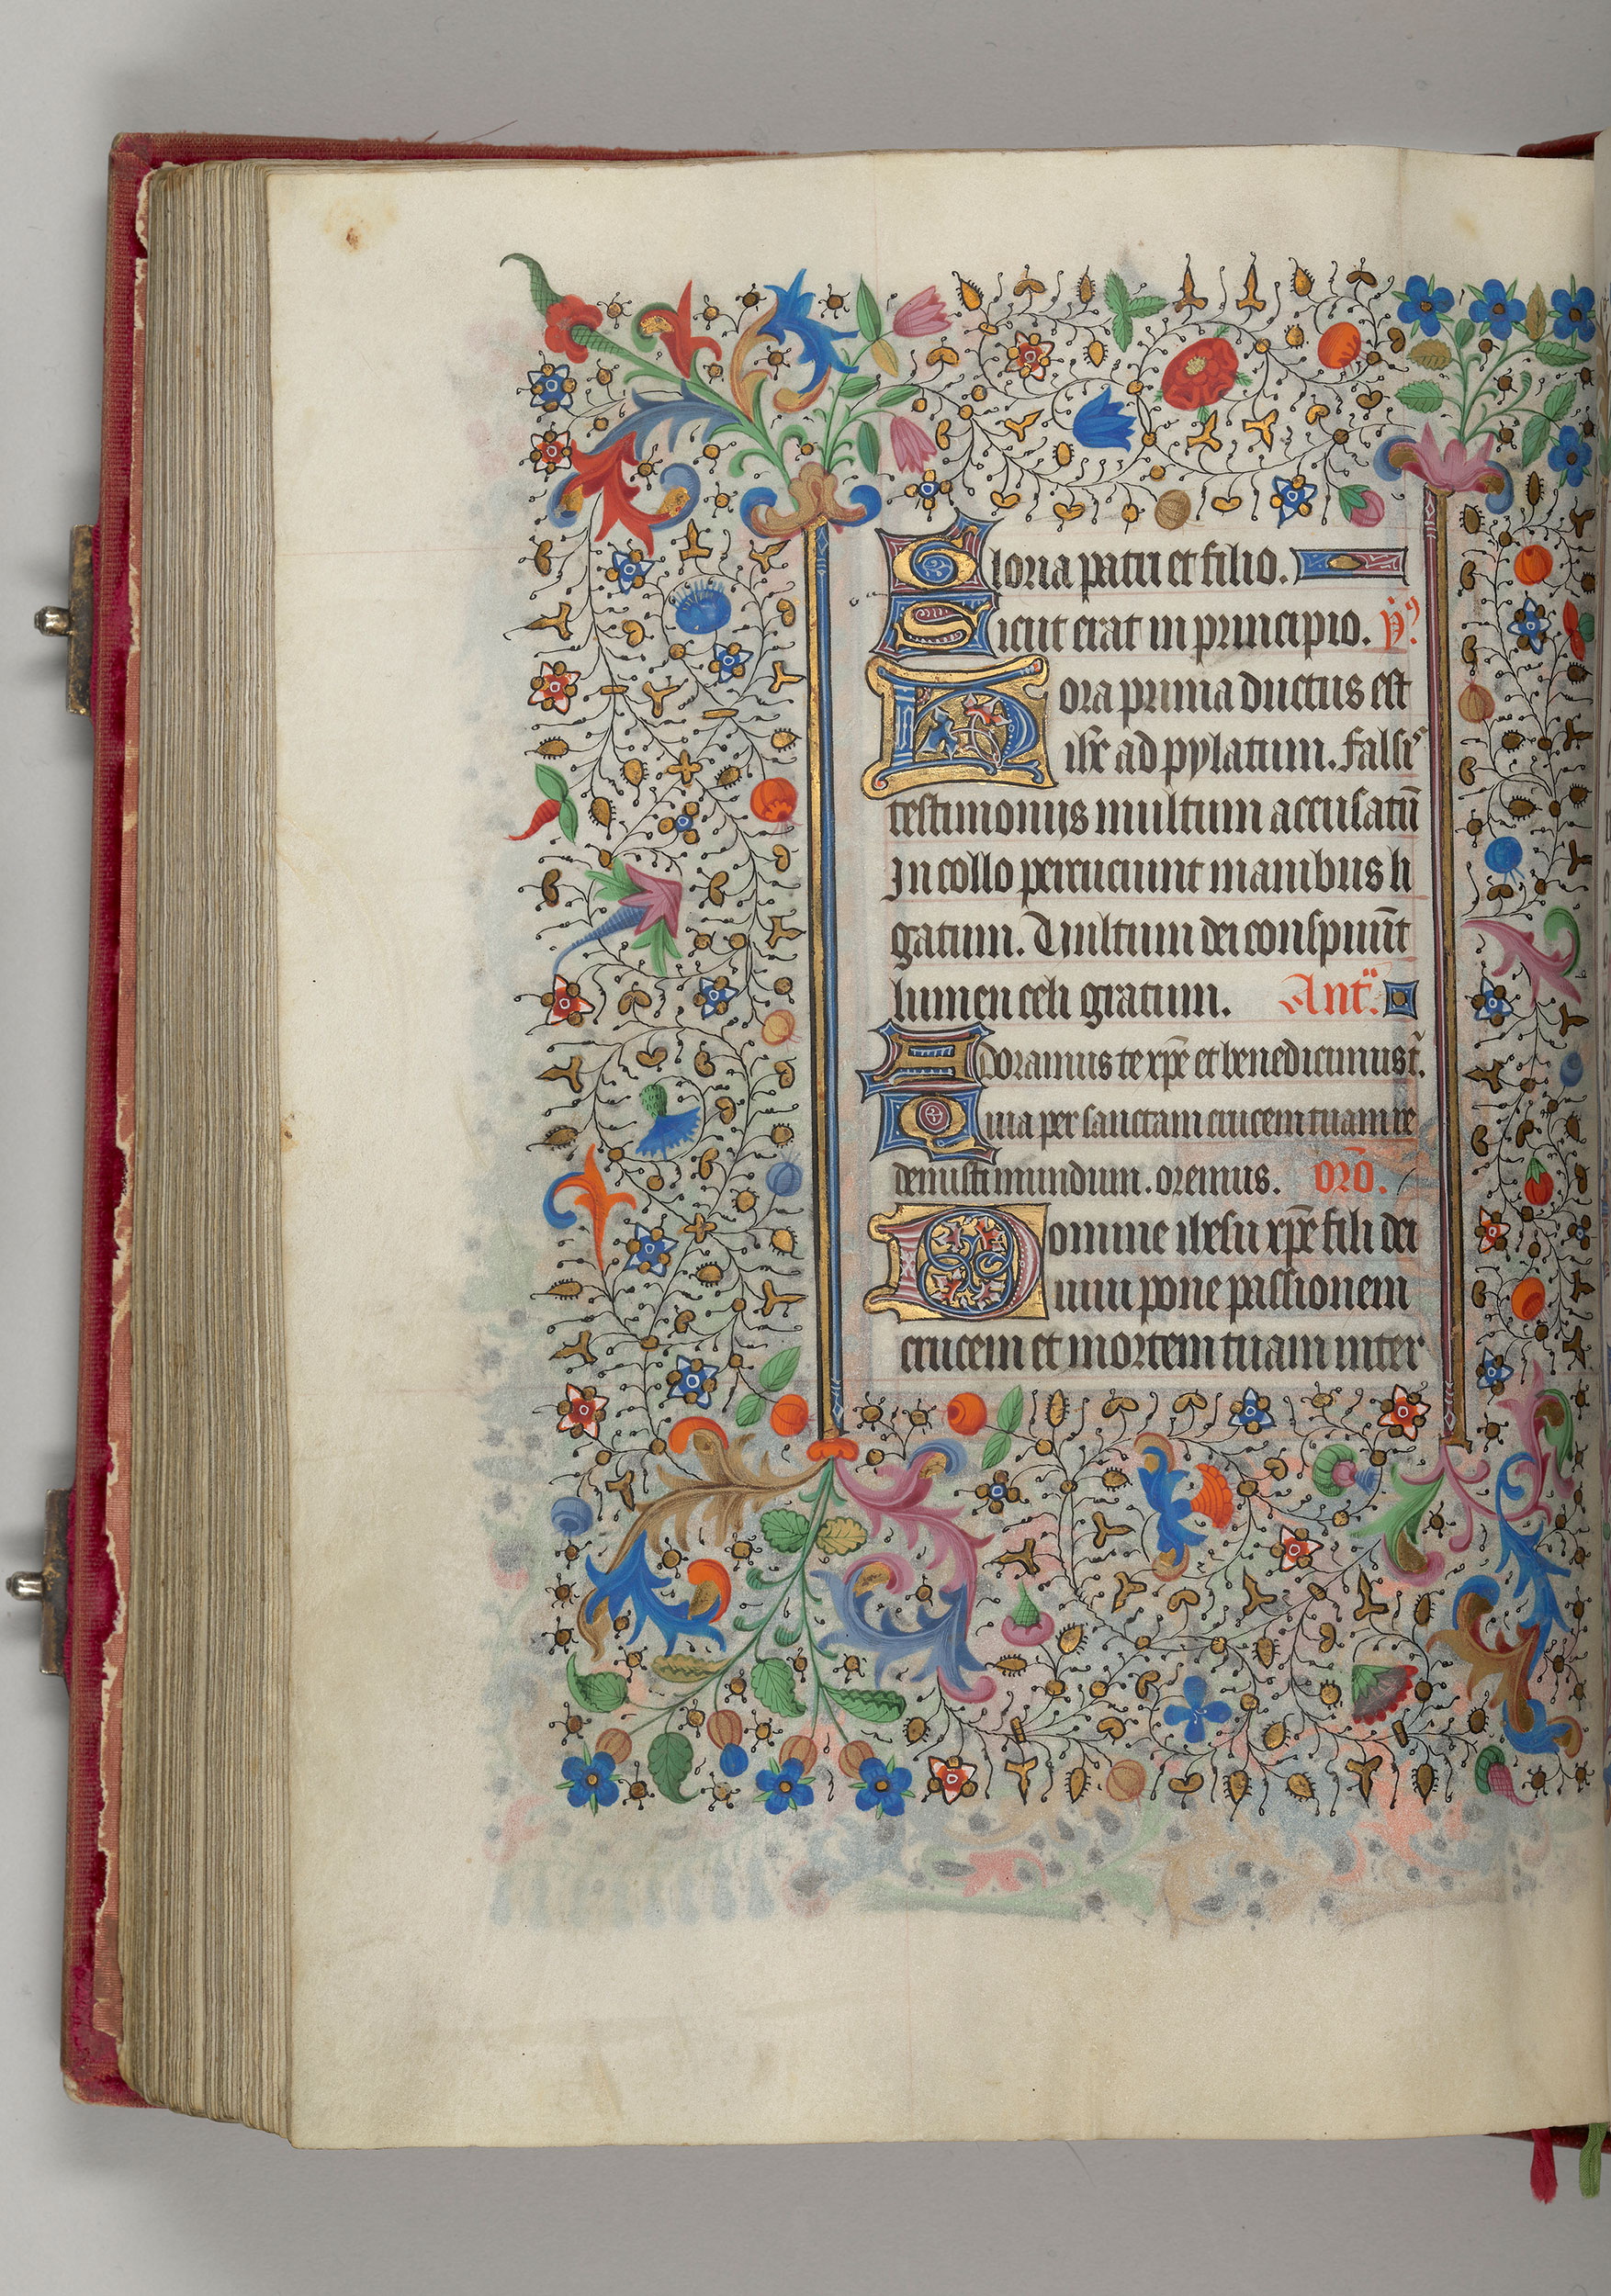 Gloria patri et filio.
Sicut erat in principio. p̃s
Hora prima ductus est
ih̃c ad pylatum. falsis
testimonijs multum accusatū
In collo percuciunt manibus li
gatum. Vultum dei conspuūt
lumen celi gratum. Ant̃.
Adoramus te xp̃e et benedicimus t̃.
Quia per sanctam crucem tuam re
demisti mundum. oremus. orō.
Domine ihesu xp̃e fili dei
uiui pone passionem
crucem et mortem tuam inter